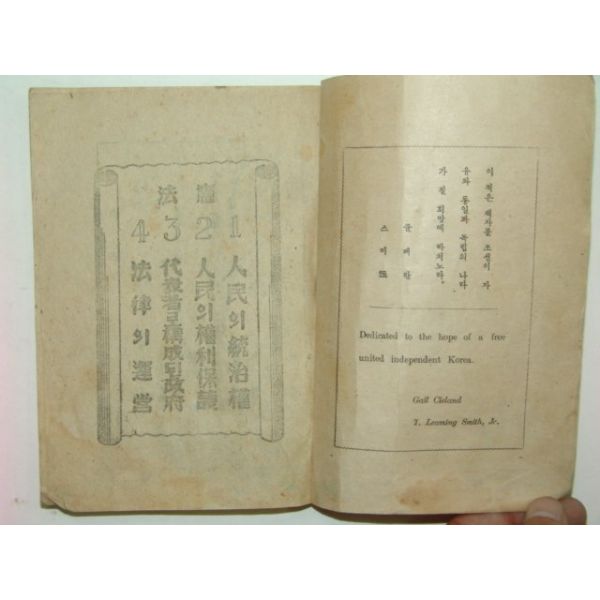 憲法
1 人民의 統治權
2 人民의 權利保護
3 代表者로 構成된 政府
4 法律의 運營
이 적은 책자를 조선이 자
유와 통일과 독립의 나라
가 될 희망에 바치노라.
Dedicated to the hope of a free
united independent Korea.
Gail Cleland
T. Leaming Smith, Jr.